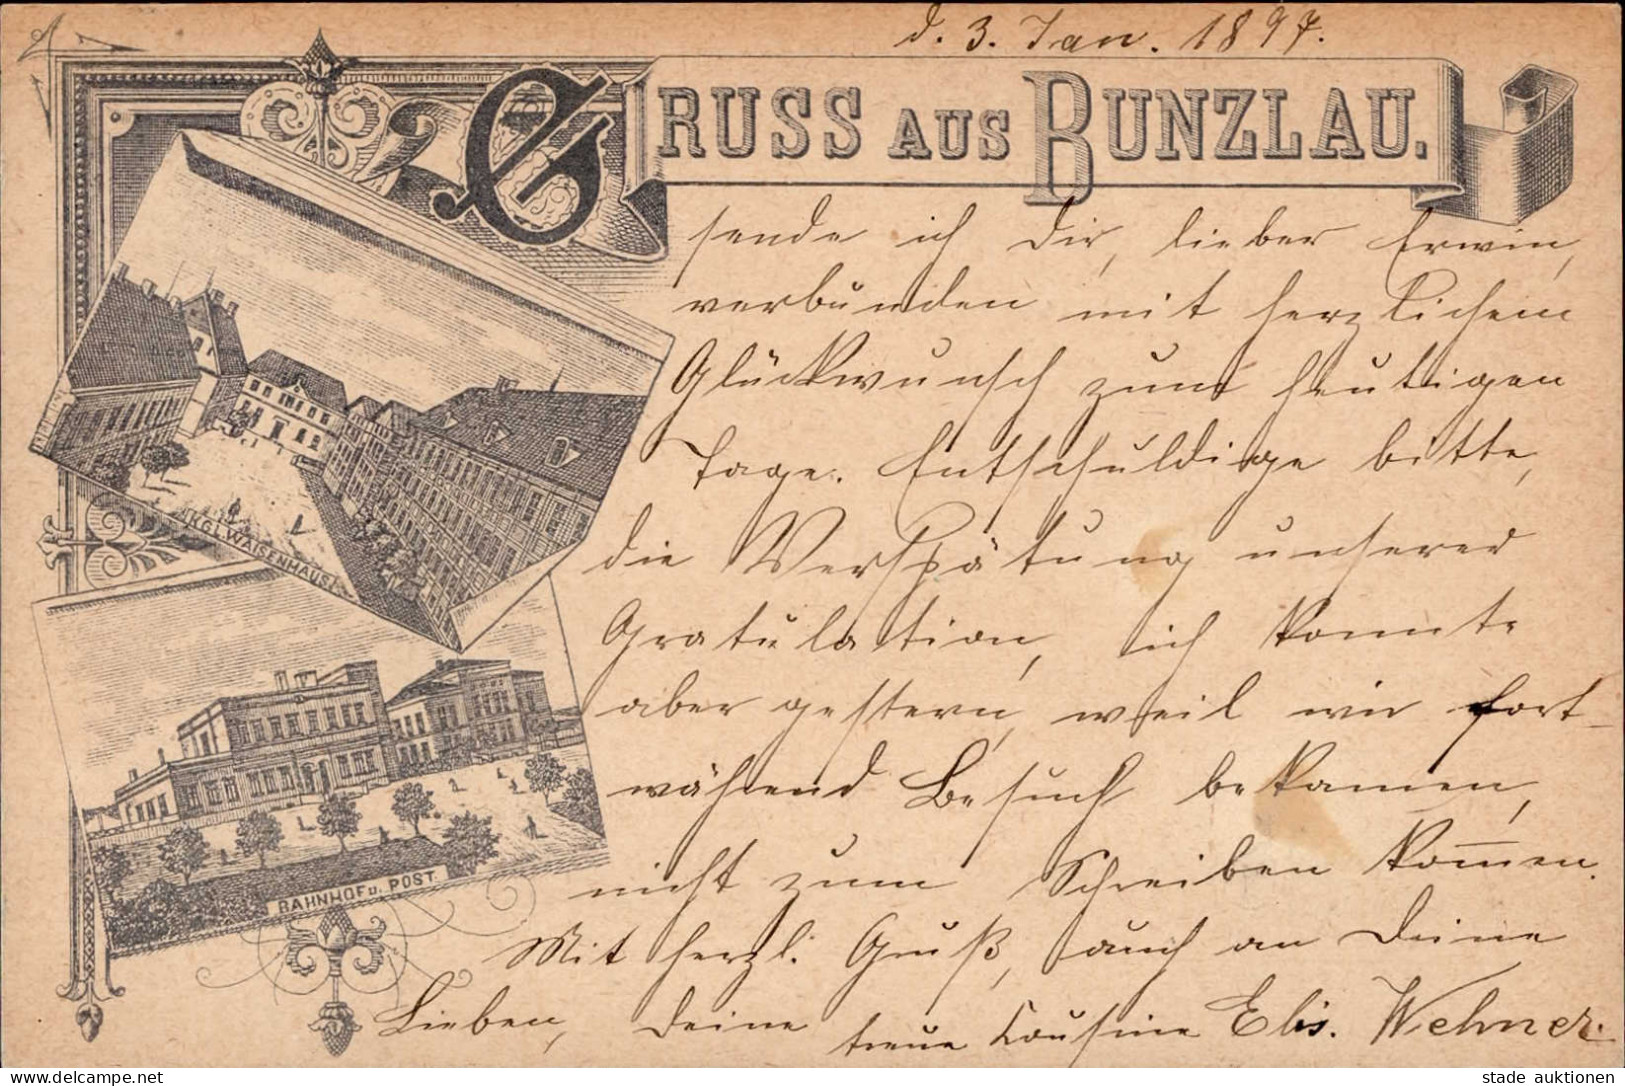 d. 3. Jan. 1897.
GRUSS AUS BUNZLAU.
sende ich Dir, lieber Erwin,
verbunden mit herzlichem
Glückwunsch zum heutigen
Tage. Entschuldige bitte,
die Verspätung unserer
Gratulation, ich konnte
aber gestern, weil wir fort-
während Besuch bekamen,
nicht zum Schreiben kom̄en.
Mit herzl. Gruß, auch an Deine
Lieben, Deine treue Cousine Elis. Wehner.
KGL. WAISENHAUS.
BAHNHOF U. POST.
www.delcampe.net
stade auktionen